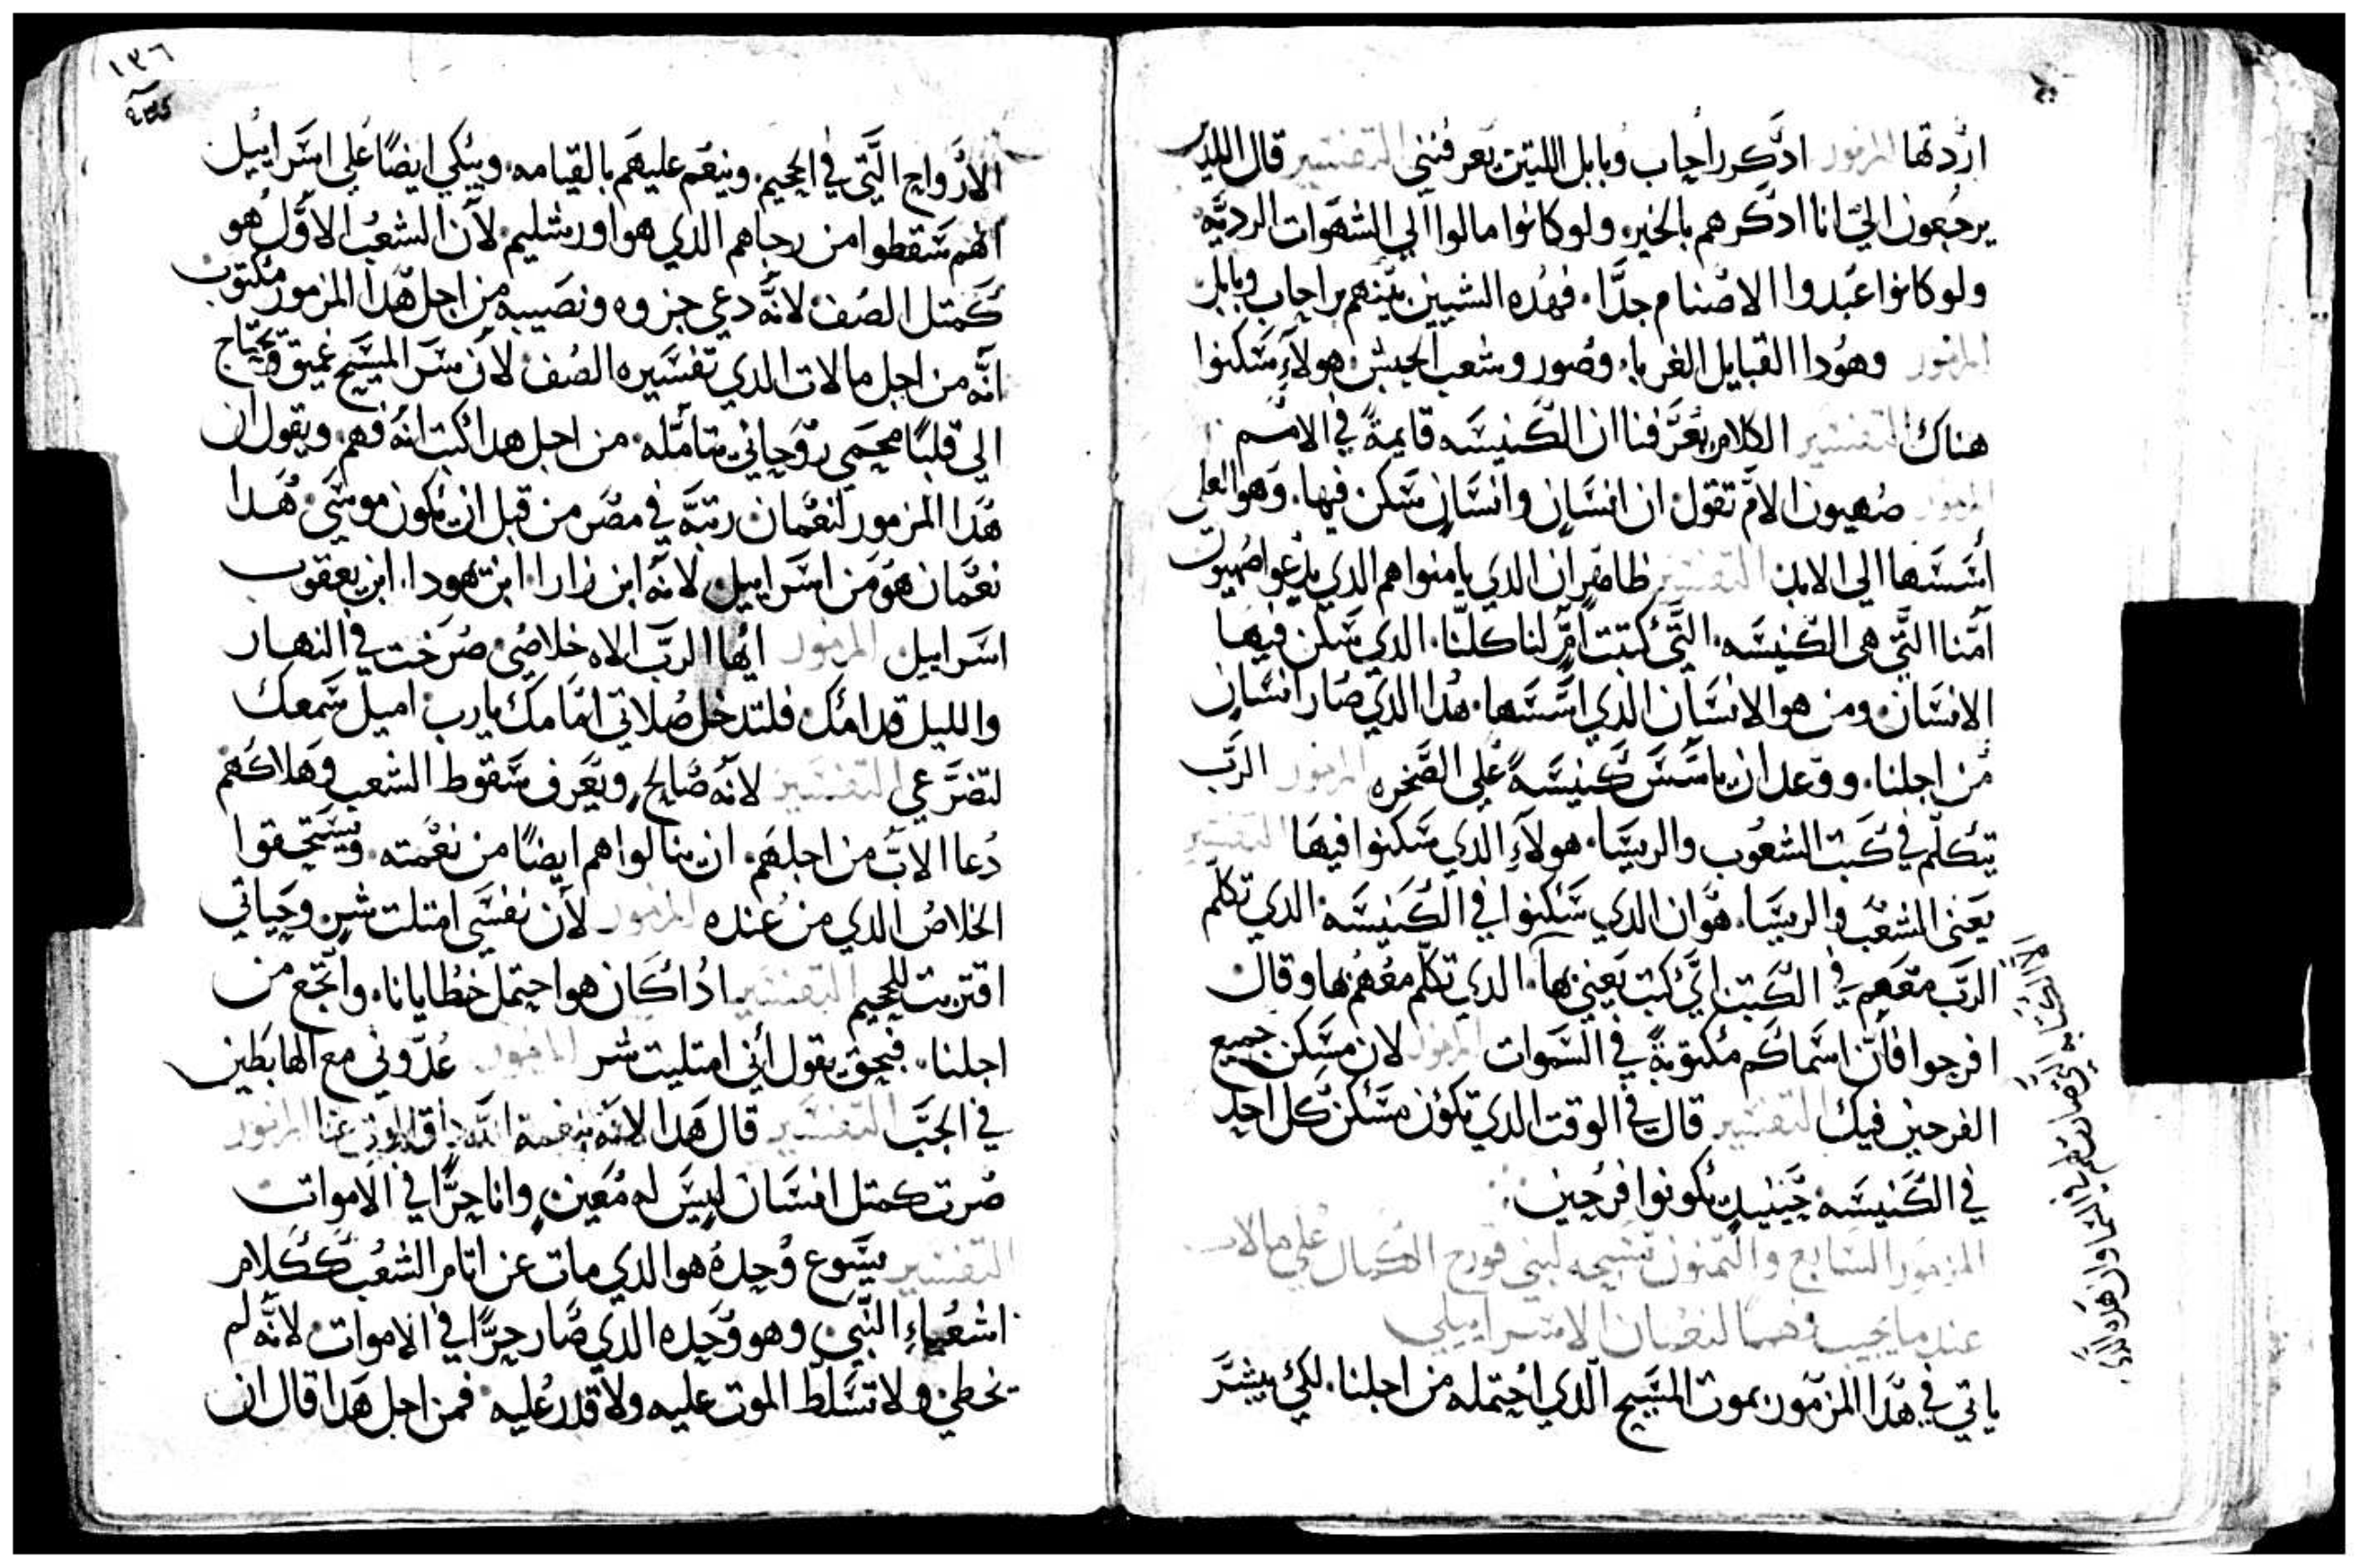 اردتها المزمور ادكر راحاب وبابل اللتين يعرفنني التفسير قال الذين
يرجعون الي انا ادكرهم بالخير ولو كانوا مالوا الي الشهوات الرديه
ولو كانوا عبدوا الاصنام جدا فهده الشيين بينهم براحاب وبابل
المزمور وهودا القبايل الغربا وصور وشعب الحبش هولاء سكنوا
هناك التفسير الكلام يعرفنا ان الكنيسه قايمة في الامم
المزمور صهيون الام تقول ان انسان وانسان سكن فيها وهو العلي
اسسها الي الابد التفسير ظاهر ان الدي يامنوا هم الدي يدعوا صهيون
امنا التي هي الكنيسه التي كتبت ام لنا كلنا الدي سكن فيها
الانسان ومن هو الانسان الذي اسسها هدا الدي صار انسان
من اجلنا ووعد ان ياسس كنيسة علي الصخره المزمور الرب
يتكلم في كتب الشعوب والريسا هولاء الدي سكنوا فيها التفسير
يعني الشعب والريسا هو ان الدي سكنوا في الكنيسه الدي تكلم
الرب معهم في الكتب اي كتب يعني بها الدي تكلم معهم بها وقال
افرحوا فان اسماكم مكتوبة في السموات المزمور لان مسكن جميع
الفرحين فيك التفسير قال في الوقت الدي تكون مسكن كل احد
في الكنيسه حينيد يكونوا فرحين
المزمور السابع والتمنون تسبحه لبني قورح الكمال علي مالات
عندما يجيب فهما لنعمان الاسراييلي
ياتي في هدا المزمور بموت المسيح الدي احتمله من اجلنا لكي يبشر
١٣٦
الارواح التي في الجحيم وينعم عليهم بالقيامه ويبكي ايضا علي اسراييل
انهم سقطوا من رجاهم الدي هو اورشليم لان الشعب الاول هو
كمتل الصف لانه دعي جزوه ونصيبه من اجل هدا المزمور مكتوب
انه من اجل مالات الدي تفسيره الصف لان سر المسيح غميق وتحتاج
الي قلبا محمي روحاني يتامله من اجل هدا كتب انه فهم ويقول ان
هدا المزمور لنعمان رتبه في مصر من قبل ان يكون موسي هدا
نعمان هو من اسراييل لانه ابن زارا ابن يهودا ابن يعقوب
اسراييل المزمور ايها الرب الاه خلاصي صرخت في النهار
والليل قدامك فلتدخل صلاتي امامك يارب اميل سمعك
لتضرعي التفسير لانه صالح ويعرف سقوط الشعب وهلاكهم
دعا الاب من اجلهم ان ينالوا هم ايضا من نعمته ويستحقوا
الخلاص الدي من عنده المزمور لان نفسي امتلت شر وحياتي
اقتربت للجحيم التفسير ادا كان هو احتمل خطايانا واتجع من
اجلنا فبحق يقول اني امتليت شر المزمور عدوني مع الهابطين
في الجب التفسير قال هدا لانه بنعمة الله داق الموت عنا المزمور
صرت كمتل انسان ليس له معين وانا حرا في الاموات
التفسير يسوع وحده هو الدي مات عن اتام الشعب ككلام
اشعياء النبي وهو وحده الدي صار حرا في الاموات لانه لم
يخطي ولا تسلط الموت عليه ولا قدر عليه فمن اجل هدا قال ان